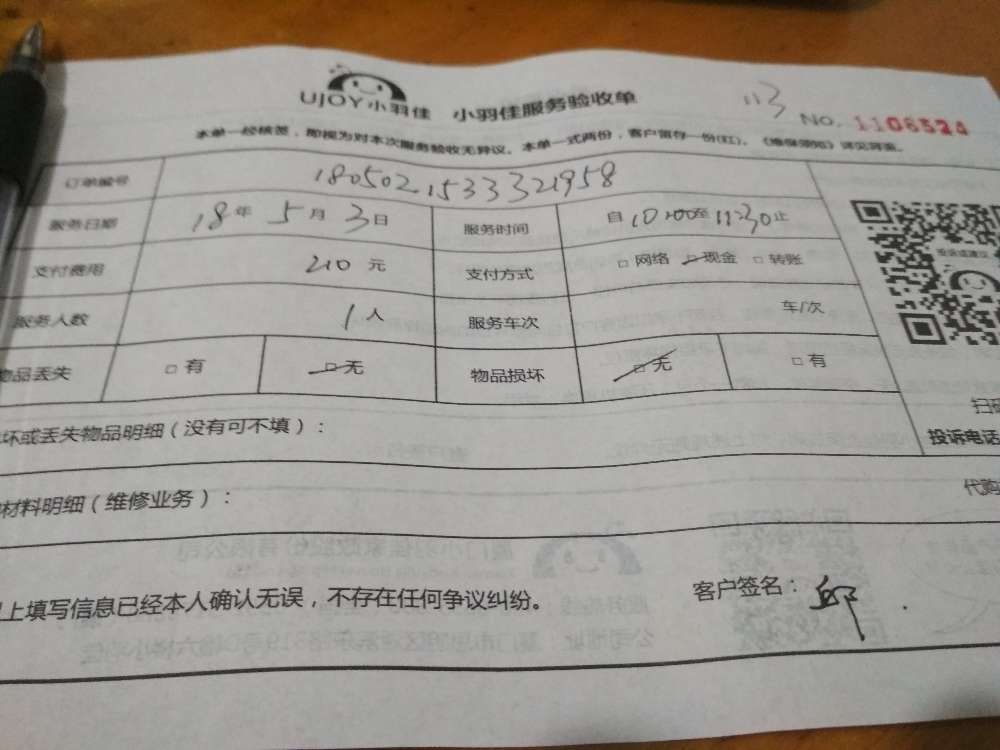 UJOY小羽佳 小羽佳服务验收单 113 NO. 1106524
本单一经核签，即视为对本次服务验收无异议。本单一式两份，客户留存一份(红)。《维保须知》详见背面。
订单编号 1805021533321958
服务日期 18年5月3日 服务时间 自10:00至11:30止
支付费用 210元 支付方式 □网络 □现金 □转账
服务人数 1人 服务车次 车/次
物品丢失 □有 □无 物品损坏 □无 □有
坏或丢失物品明细（没有可不填）：
投诉电话
材料明细（维修业务）： 代购
上填写信息已经本人确认无误，不存在任何争议纠纷。 客户签名：邱